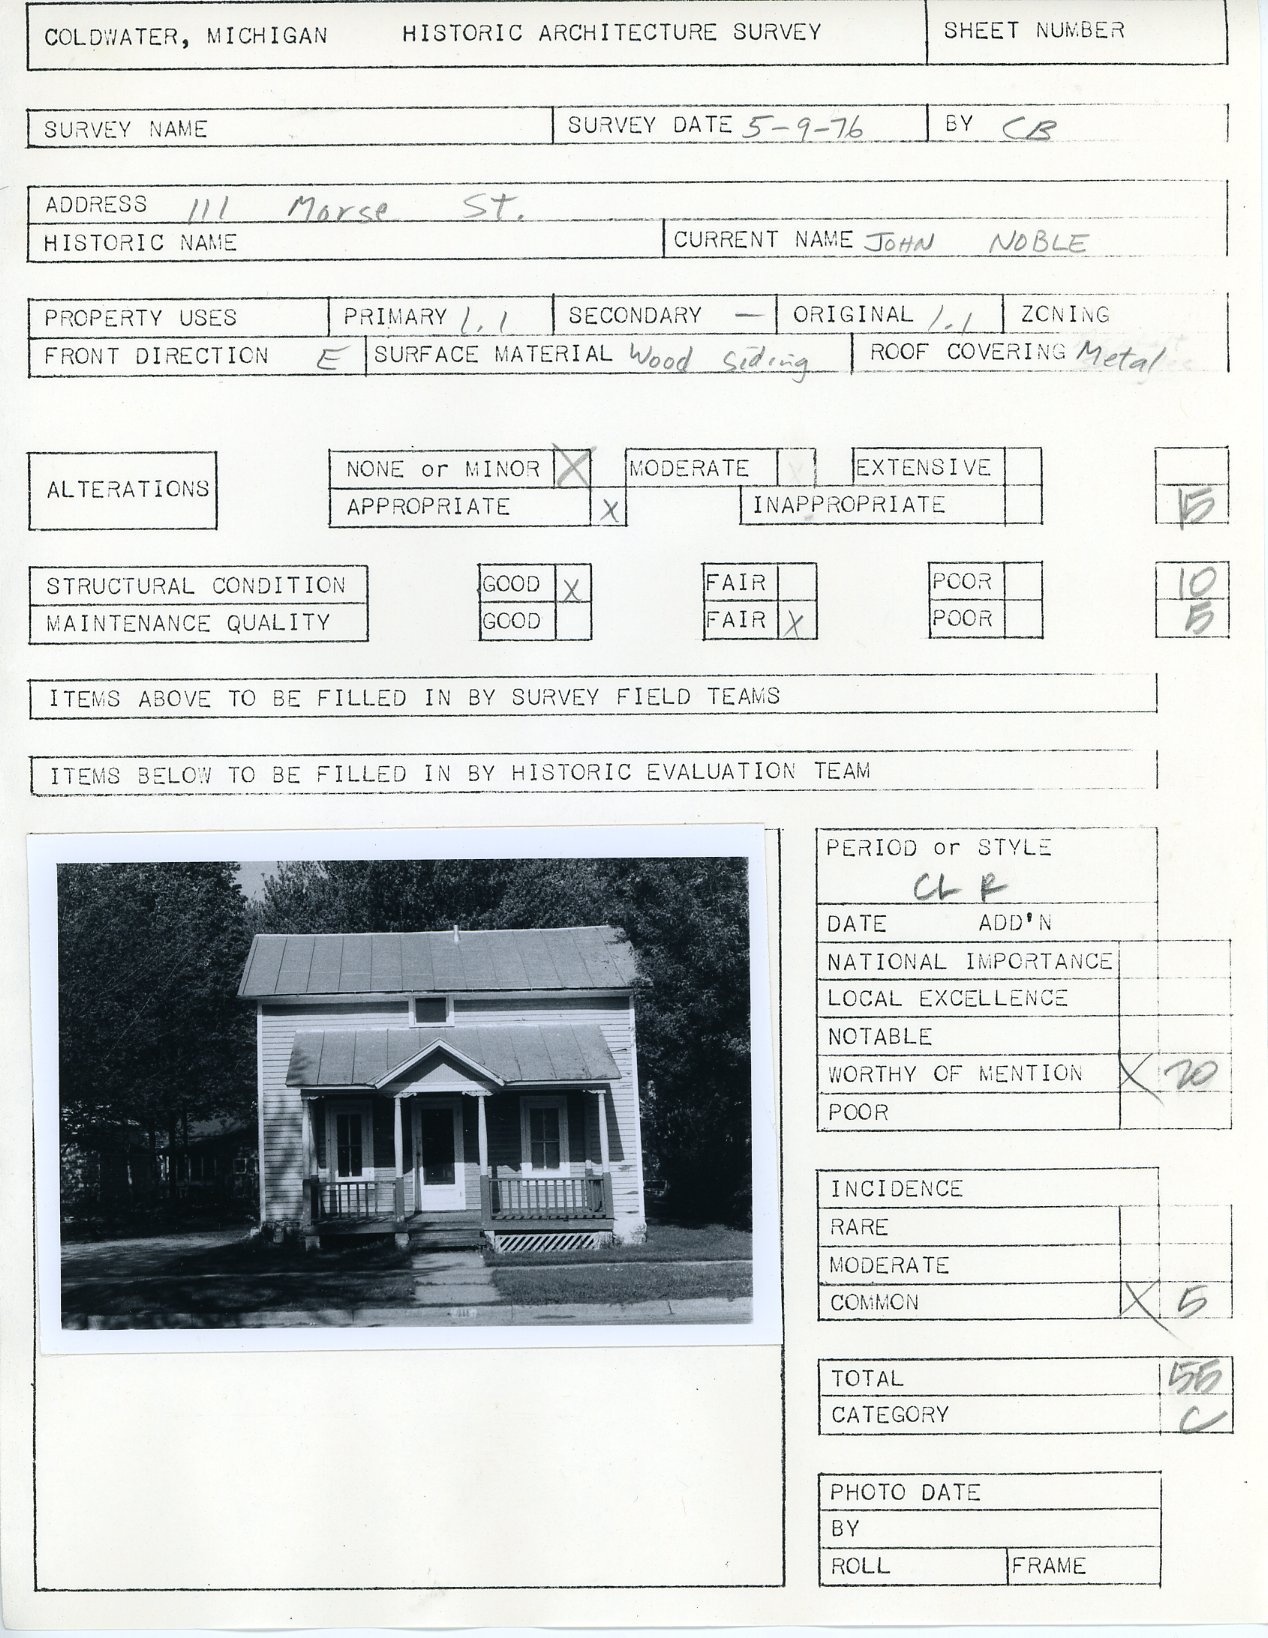 COLDWATER, MICHIGAN HISTORIC ARCHITECTURE SURVEY SHEET NUMBER
SURVEY NAME SURVEY DATE 5-9-76 BY CB
ADDRESS 111 Morse St.
HISTORIC NAME CURRENT NAME JOHN NOBLE
PROPERTY USES PRIMARY 1.1 SECONDARY — ORIGINAL 1.1 ZONING
FRONT DIRECTION E SURFACE MATERIAL Wood Siding ROOF COVERING Metal
ALTERATIONS NONE or MINOR X MODERATE EXTENSIVE
APPROPRIATE X INAPPROPRIATE 15
STRUCTURAL CONDITION GOOD X FAIR POOR 10
MAINTENANCE QUALITY GOOD FAIR X POOR 5
ITEMS ABOVE TO BE FILLED IN BY SURVEY FIELD TEAMS
ITEMS BELOW TO BE FILLED IN BY HISTORIC EVALUATION TEAM
PERIOD or STYLE
CL R
DATE ADD'N
NATIONAL IMPORTANCE
LOCAL EXCELLENCE
NOTABLE
WORTHY OF MENTION X 20
POOR
INCIDENCE
RARE
MODERATE
COMMON X 5
TOTAL 55
CATEGORY C
PHOTO DATE
BY
ROLL FRAME